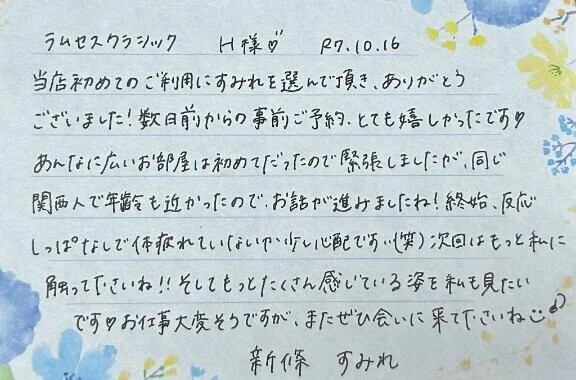 ラムセスクラシック H様♡ R7.10.16
当店初めてのご利用にすみれを選んで頂き、ありがとう
ございました!数日前からの事前ご予約、とても嬉しかったです♡
あんなに広いお部屋は初めてだったので緊張しましたが、同じ
関西人で年齢も近かったので、お話が進みましたね!終始、反応
しっぱなしで体疲れていないか少し心配です(笑)次回はもっと私に
触ってくださいね!!そしてもっとたくさん感じている姿を私も見たい
です♡お仕事大変そうですが、またぜひ会いに来てくださいね
新條 すみれ